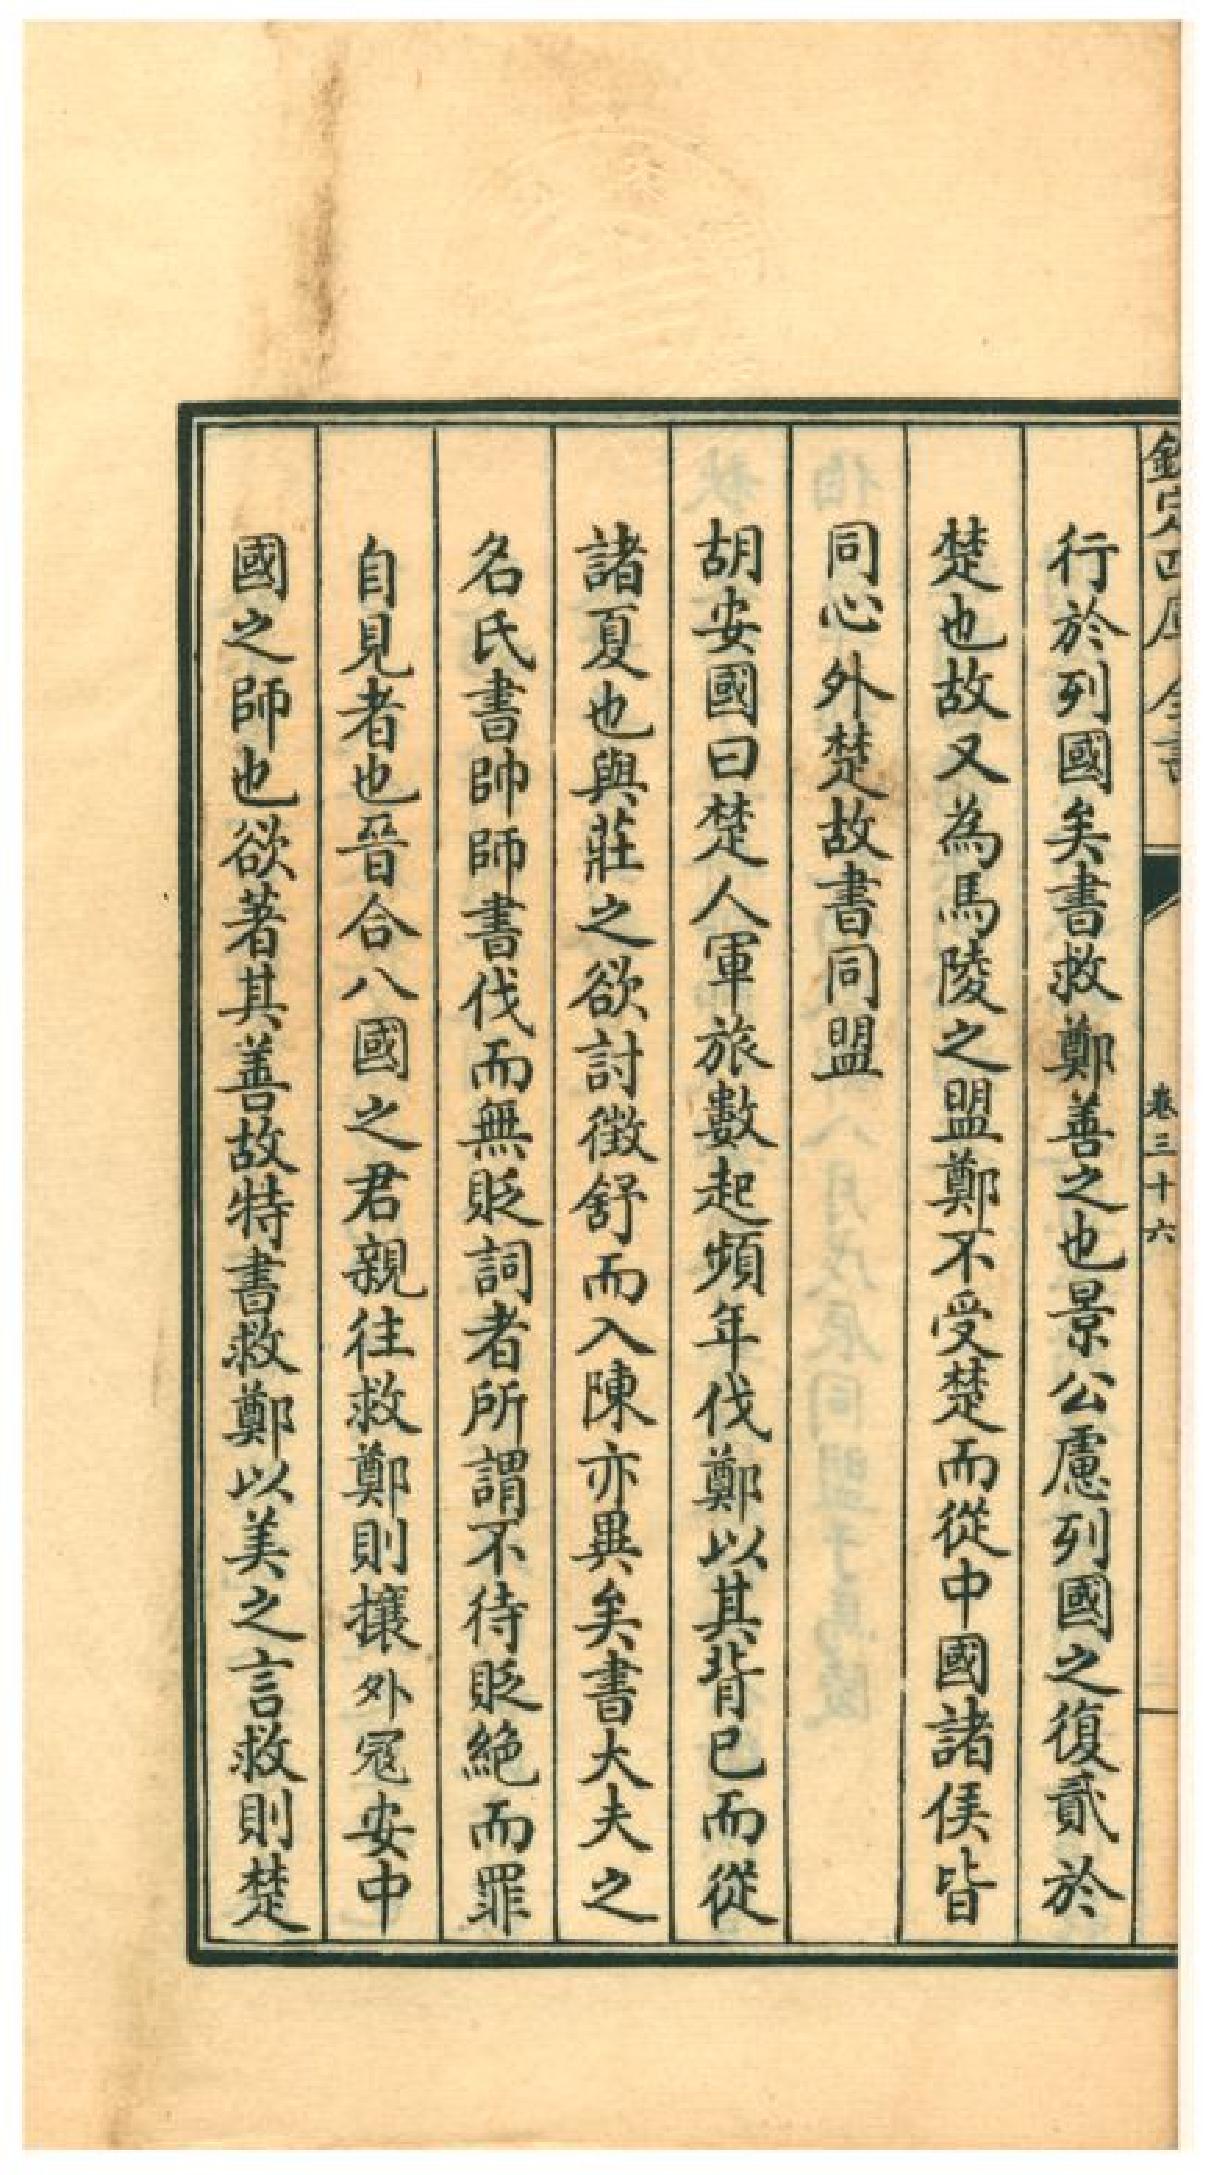 欽定四庫全書
卷三十六
行於列國矣書救鄭善之也景公慮列國之復貳於
楚也故又為馬陵之盟鄭不受楚而從中國諸侯皆
同心外楚故書同盟
胡安國曰楚人軍旅數起頻年伐鄭以其背已而從
諸夏也與莊之欲討徵舒而入陳亦異矣書大夫之
名氏書帥師書伐而無貶詞者所謂不待貶絕而罪
自見者也晉合八國之君親往救鄭則攘外寇安中
國之師也欲著其善故特書救鄭以美之言救則楚